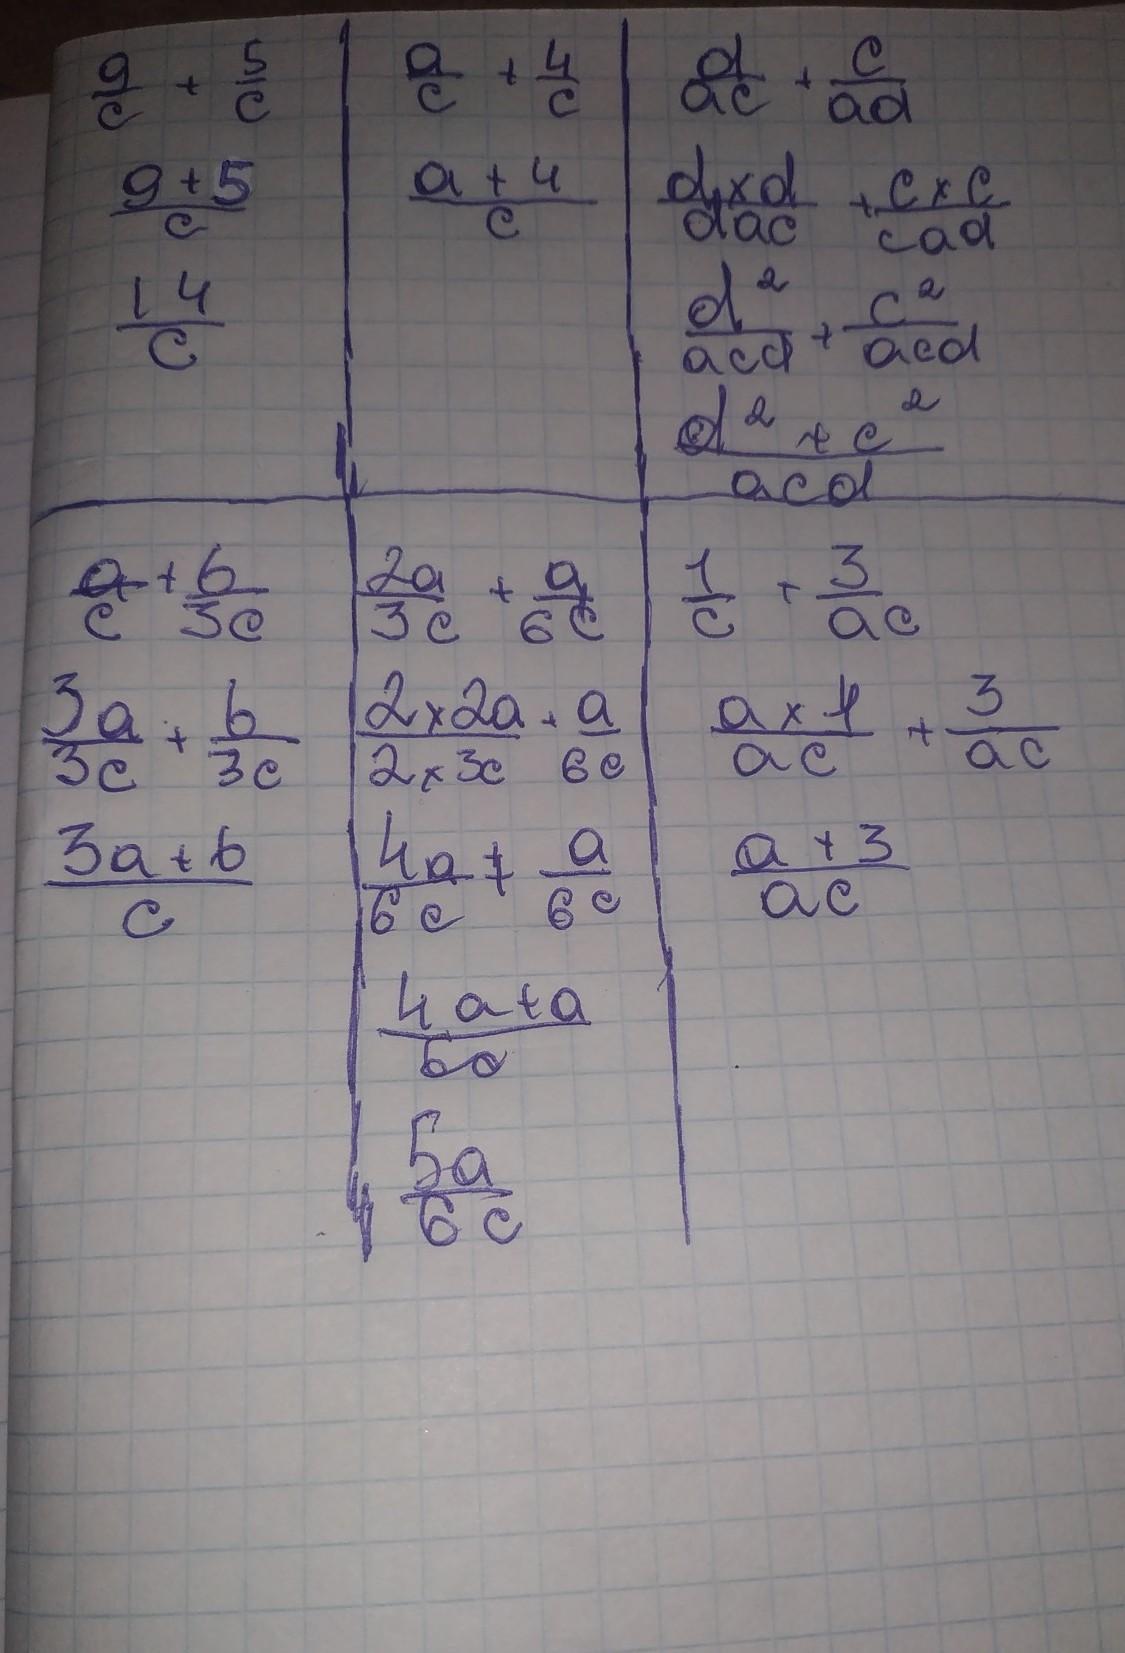 9/c + 5/c
9+5/c
14/c
a/c + 4/c
a+4/c
d/ac + c/ad
d×d/dac + c×c/cad
d²/acd + c²/acd
d²+c²/acd
a/c + b/3c
3a/3c + b/3c
3a+b/c
2a/3c + a/6c
2×2a/2×3c + a/6c
4a/6c + a/6c
4a+a/6c
5a/6c
1/c + 3/ac
a×1/ac + 3/ac
a+3/ac